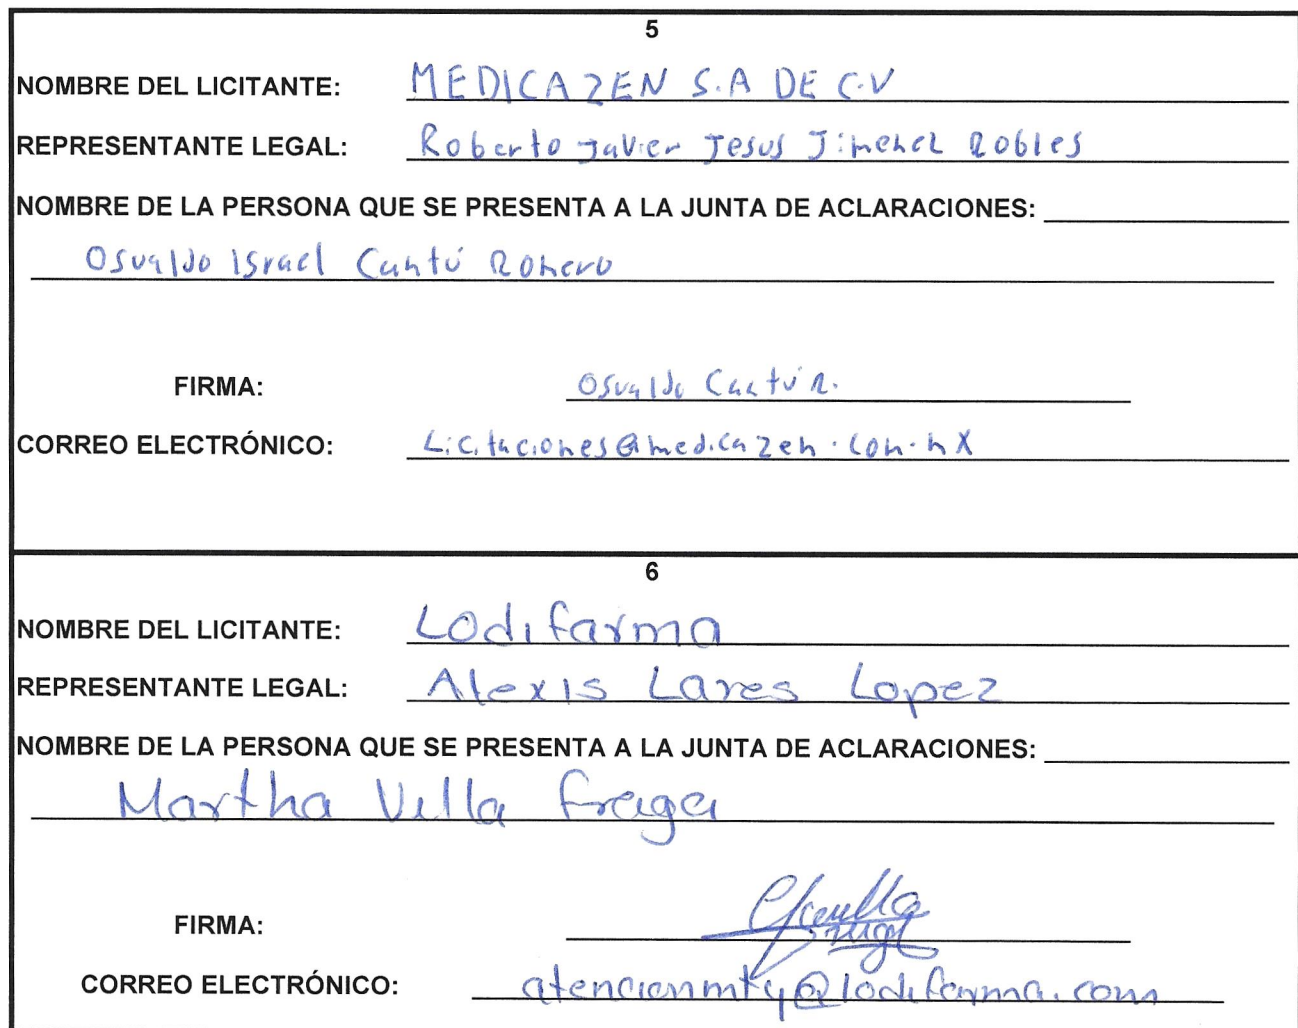 5
NOMBRE DEL LICITANTE: MEDICAZEN S.A DE C.V
REPRESENTANTE LEGAL: Roberto Javier Jesus Jimenez Robles
NOMBRE DE LA PERSONA QUE SE PRESENTA A LA JUNTA DE ACLARACIONES:
Osvaldo Israel Cantú Romero
FIRMA: Osvaldo Cantú R.
CORREO ELECTRÓNICO: Licitaciones@medicazen.com.mx
6
NOMBRE DEL LICITANTE: Lodifarma
REPRESENTANTE LEGAL: Alexis Lares Lopez
NOMBRE DE LA PERSONA QUE SE PRESENTA A LA JUNTA DE ACLARACIONES:
Martha Villa Fraga
FIRMA:
CORREO ELECTRÓNICO: atencionmty@lodifarma.com